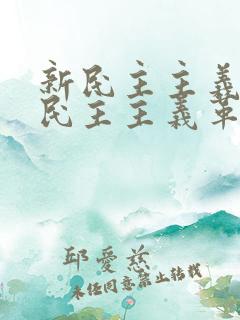 新民主主義
民主主義革
邱愛慈
未经同意禁止转载